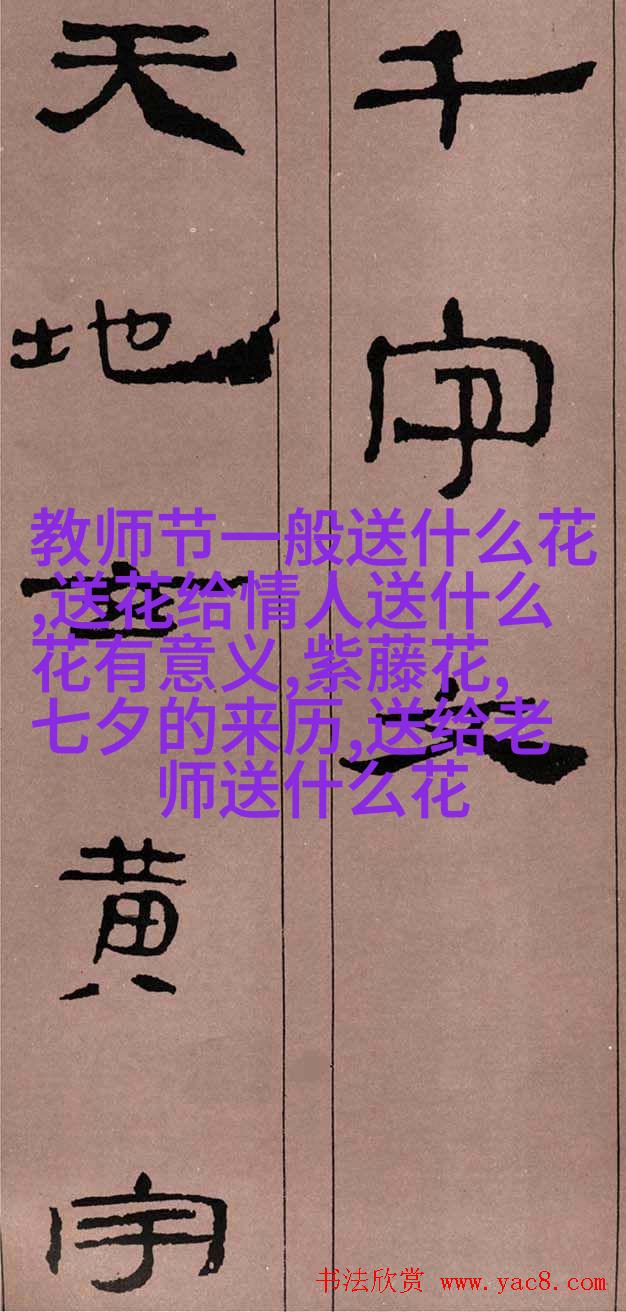 千字文
天地玄黄宇
教师节一般送什么花
,送花给情人送什么
花有意义,紫藤花,
七夕的来历,送给老
师送什么花
书法欣赏 www.yac8.com